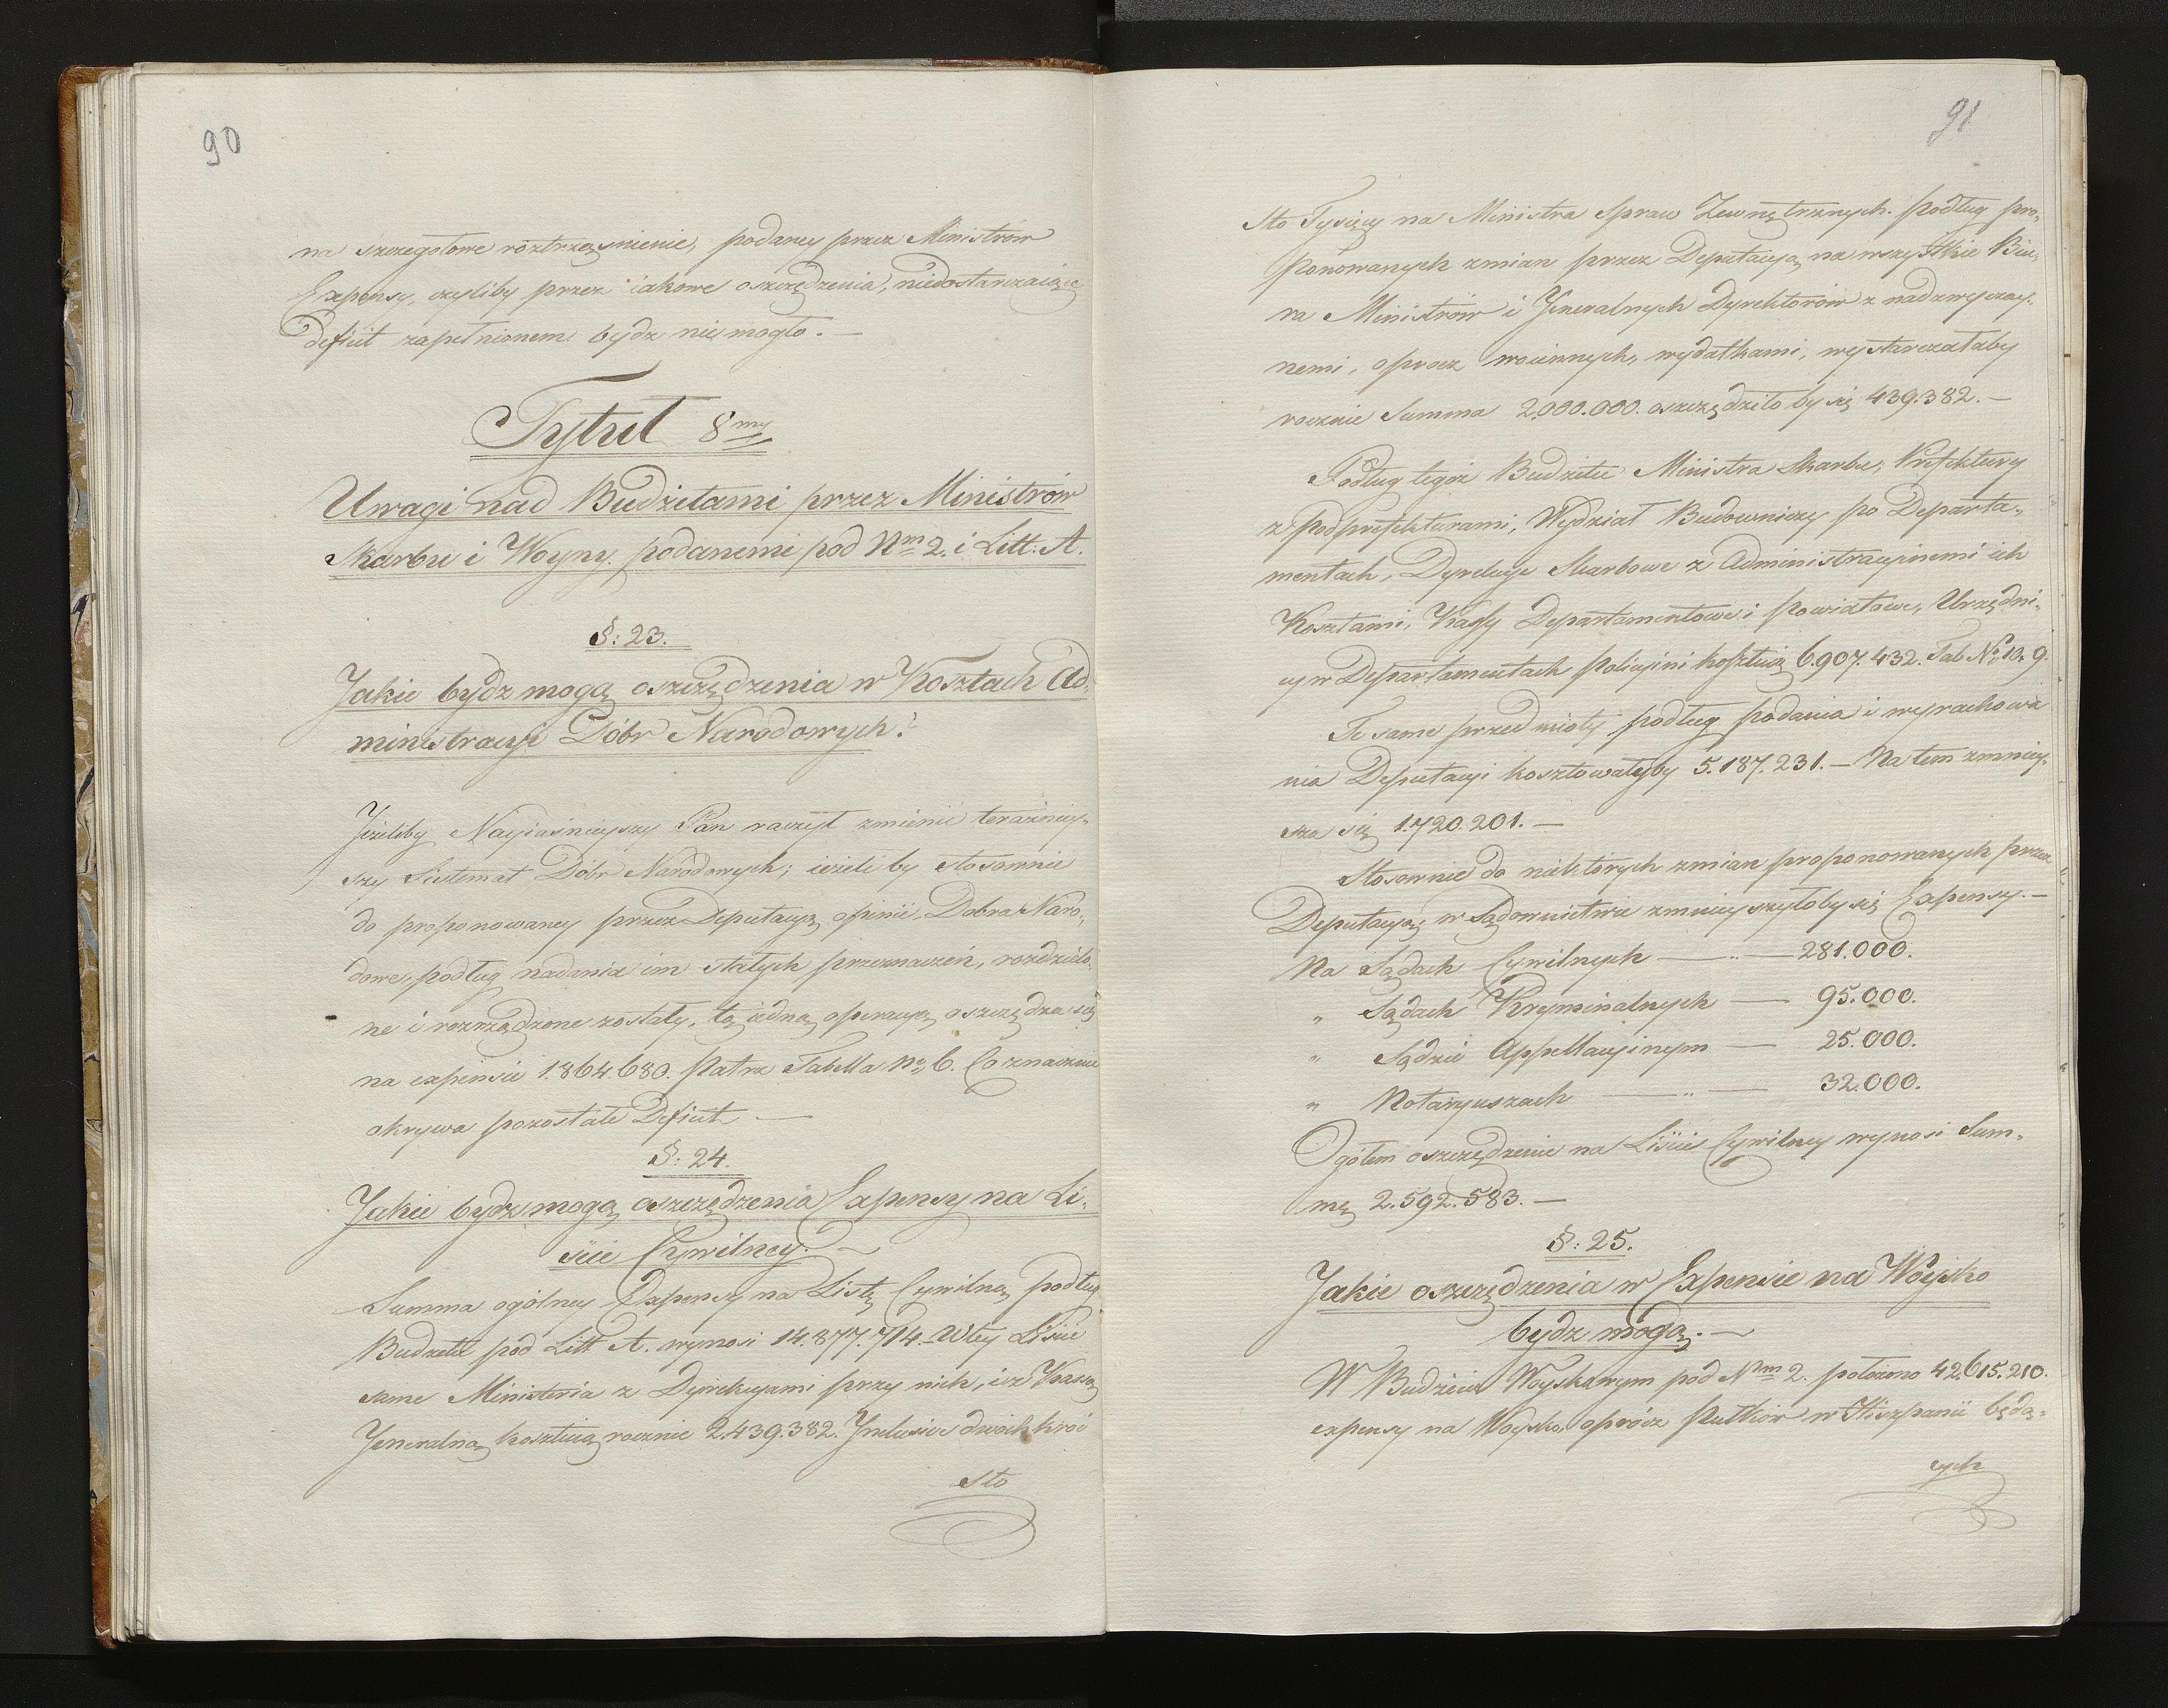 90
na szczegołowe roztrząśnienie, podaney przez Ministrów
Expensy, czyliby przez iakowe oszczędzenia, niedostarczaiące
deficit zapełnionem bydz nie mogło. —
Tytuł 8my
Uwagi nad Budżetami przez Ministrów
Skarbu i Woyny podanemi pod Nm 2. i Litt: A.
§: 23.
Jakie bydz mogą oszczędzenia w Kosztach Ad-
ministracyi Dóbr Narodowych?
Jeżeliby Nayiaśnieyszy Pan raczył zmienić teraźniey-
szy Sistemat Dóbr Narodowych; ieżeli by stosownie
do proponowaney przez Deputacyą opinii, Dobra Naro-
dowe, podług nadania im stałych przeznaczeń, rozdzielo-
ne i rozrządzone zostały, tą iedną operacyą oszczędza się
na expensie 1.864.680. Patrz Tabella No 6. Co znacznie
okrywa pozostałe Deficit —
§: 24.
Jakie bydz mogą oszczędzenia Expensy na Li-
ście Cywilney. —
Summa ogólney Expensy na Listę Cywilną podług
Budżetu pod Litt. A. wynosi 14.877.714. W tey Liście
same Ministeria z Dyrekcyami przy nich, i z Kassą
Jeneralną kosztuią rocznie 2.439.382. Inclusive dwóchkroć
sto
91
sto Tysięcy na Ministra Spraw Zewnętrznych. Podług pro-
ponowanych zmian przez Deputacyą, na wszystkie Biu-
ra Ministrów i Jeneralnych Dyrektorów z nadzwyczay-
nemi, oprocz woiennych, wydatkami, wystarczałaby
rocznie Summa 2.000.000. oszczędziło by się 439.382. —
Podług tegoż Budżetu Ministra Skarbu; Prefektury
z Podprefekturami, Wydział Budowniczy po Departa-
mentach, Dyrekcye Skarbowe z Administracyinemi ich
Kosztami, Kassy Departamentowe i Powiatowe, Urzędni-
cy w Departamentach Policyini kosztuią 6.907.432. Tab. No 10. 9.
Te same przedmioty podług podania i wyrachowa
nia Deputacyi kosztowałyby 5.187.231. — Na tem zmniey-
sza się 1.720.201. —
Stosownie do niektórych zmian proponowanych przez
Deputacyą, w Sądownictwie zmnieyszyłoby się Expensy. —
Na Sądach Cywilnych — „ — 281.000.
„ Sądach Kryminalnych — 95.000.
„ Sądzie Appellacyinym — 25.000.
„ Notaryuszach — „ — 32.000.
Ogółem oszczędzenie na Liście Cywilney wynosi Sum-
mę 2.592.583. —
§: 25.
Jakie oszczędzenia w Expensie na Woysko
bydz mogą. —
W Budżecie Woyskowym pod Nm 2. położono 42.615.210.
expensy na Woysko, oprócz Pułków w Hiszpanii będą-
cych